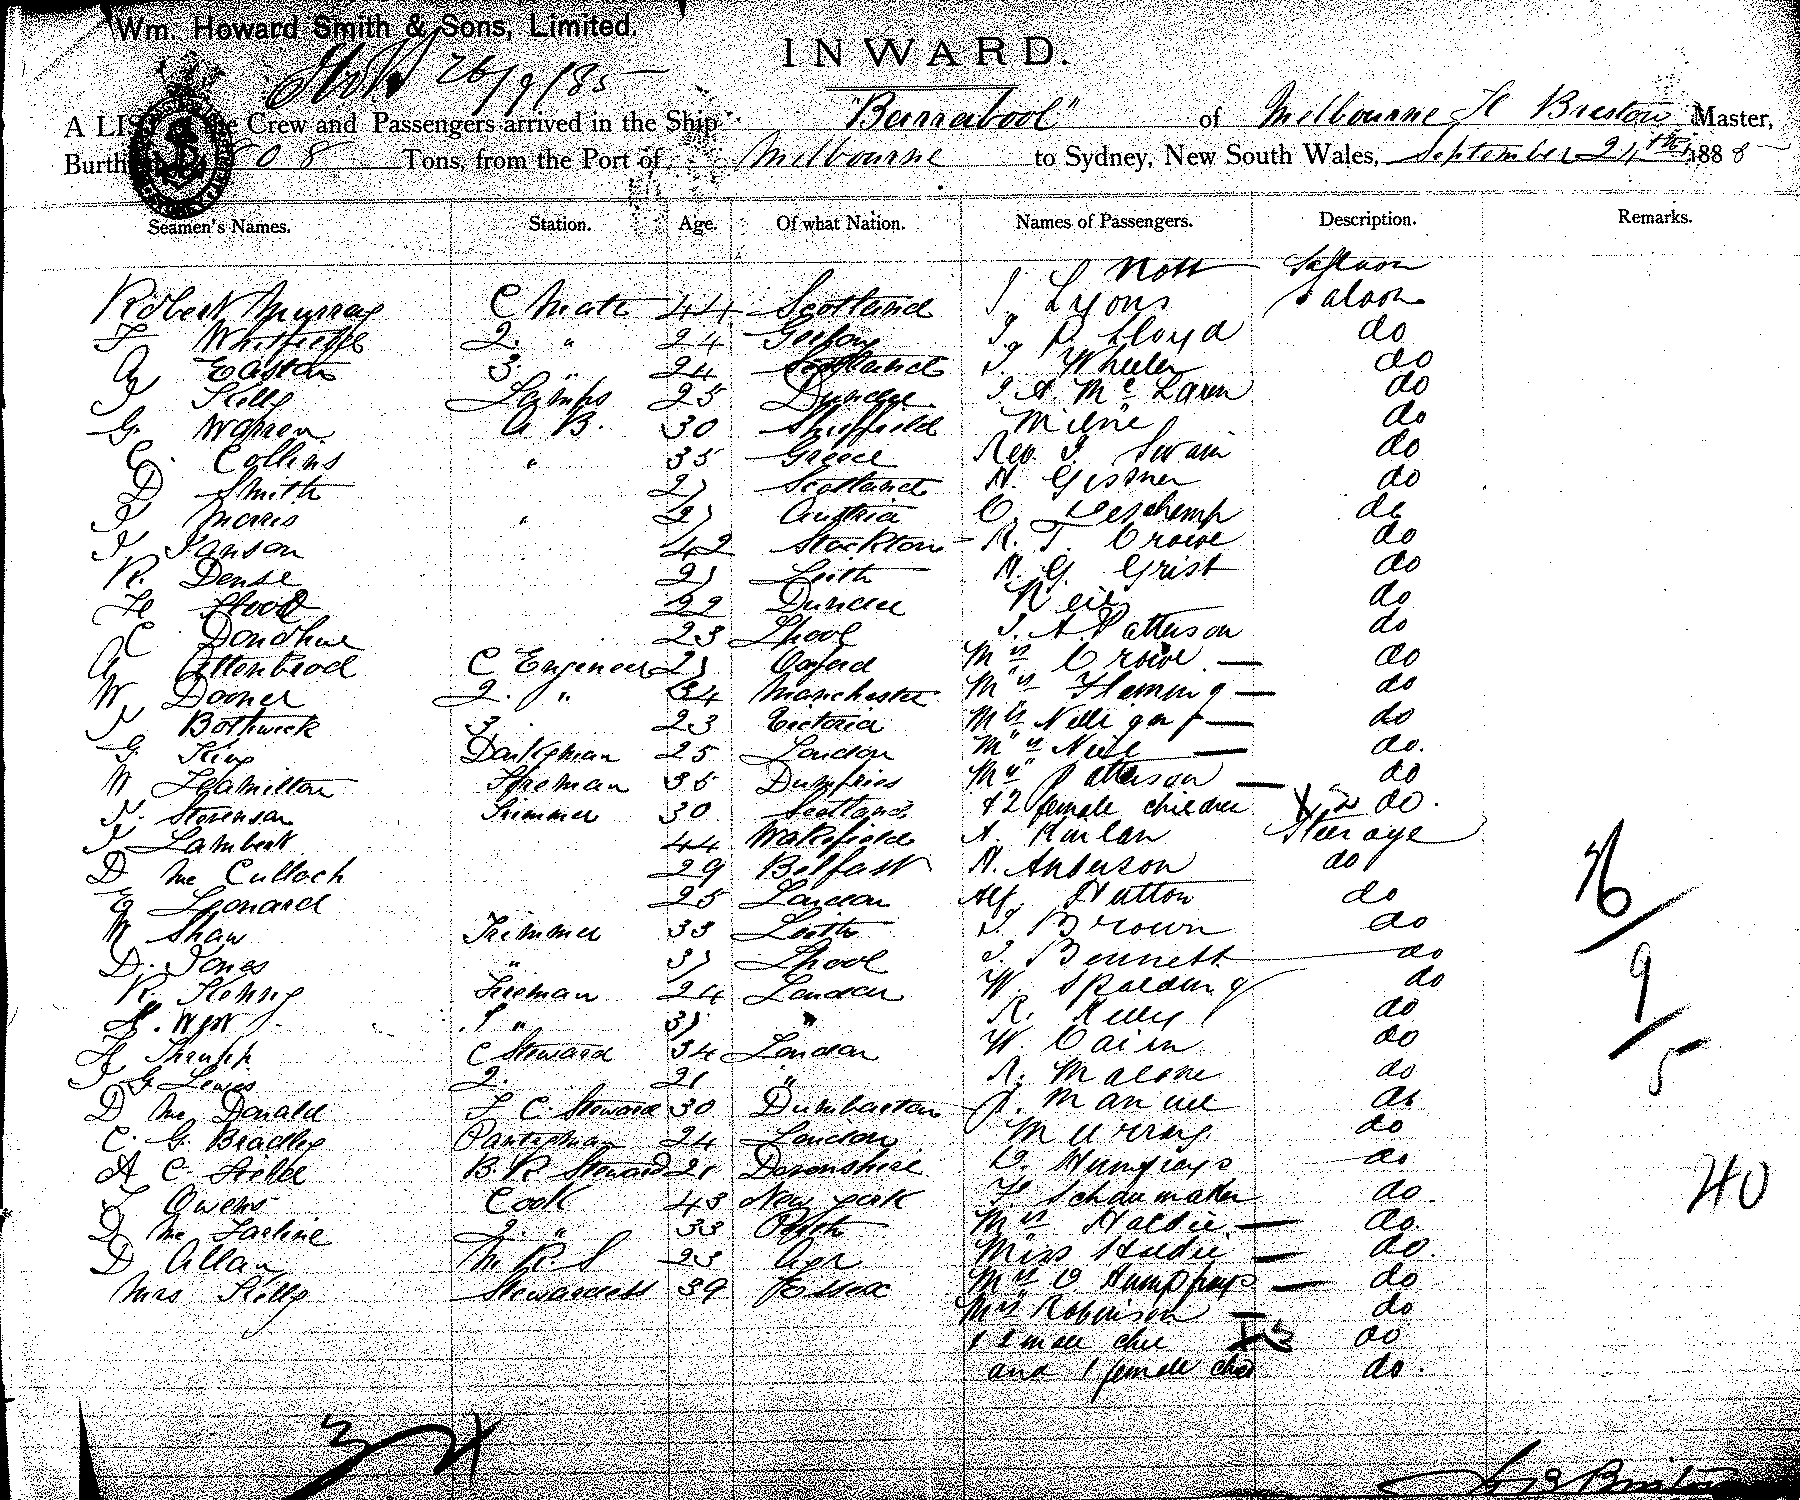 Wm. Howard Smith & Sons, Limited.
26/9/85
INWARD.
A LIST of the Crew and Passengers arrived in the Ship "Burrabool" of Melbourne H Bristow Master,
808 Tons, from the Port of Melbourne to Sydney, New South Wales, September 24th 1888
Seamen's Names. Station. Age. Of what Nation. Names of Passengers. Description. Remarks.
Nott Saloon
Robert Murray C Mate 44 Scotland J. Lyons Saloon
Whitfield 2. " 24 J. P Lloyd do
A Easton 3. " 24 Scotland J. Wheeler do
J Kelly Lamps 25 Dundee J A McLaren do
G. Warren A B. 30 Sheffield Milne do
C. Collins " 35 Greece Rev J. Swain do
D Smith 27 Scotland H. Gissner do
J Morris " 27 Austria C. do
J Janson 42 Stockton R. T. Crowe do
R. Dense 27 Leith H. G. Grist do
H Hood 22 Dundee Neil do
C Donohue 23 Lpool J. A Patterson do
A Attenbrod C Engineer 27 Oxford Mrs Crowe — do
W Dooner 2. " 34 Manchester Mrs Fleming — do
J Bothwick 3. 23 Victoria Mrs — do
G. King Donkeyman 25 London Mrs Neil — do.
W Hamilton Fireman 35 Dumfries Mrs Patterson — do
J. Stevenson Trimmer 30 Scotland & 2 female children do.
J Lambert 44 Wakefield A. Steerage
D Mc Culloch 29 Belfast H. Anderson do
E Leonard 25 London Alf. Hatton do
Shaw Trimmer 33 Leith J. Brown do
D. Jones " 37 Lpool J. Bennett do
R. Fireman 24 London W. Spalding do
" 37 " R. Kelly do
H C Steward 34 London W Cain do
J G Lewis 2. 21 " R. Malone do
D Mc Donald F C Steward 30 Dumbarton J. Manuel do
C. G. Bradley Pantryman 24 London Murray do
A C B R Steward 21 Devonshire D. Humfrays do
J Owens Cook 43 New York F. Schaumaker do.
D Mc Farline 2. " 33 Perth Mrs Haldie — do.
D Allan M R S 23 Ayr Miss — do.
Mrs Kelly Stewardess 39 Essex Mrs D Humphrys — do
Mrs Robinson — do
& 2 male chil do
and 1 female child do.
36
9
5
40
34